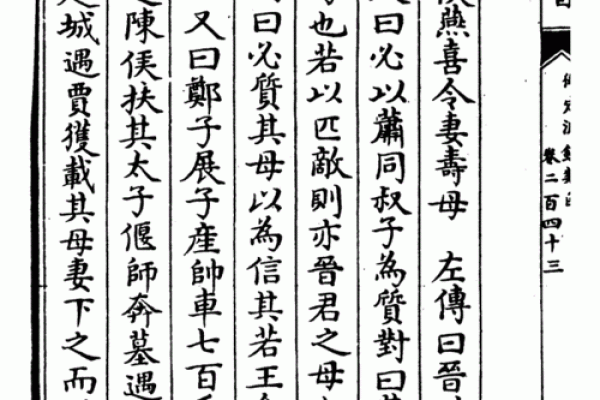 御定淵鑑類函
卷二百四十三
侯燕喜令妻壽母 左傳曰晉
曰必以蕭同叔子為質對曰
也若以匹敵則亦晉君之母
曰必質其母以為信其若王
又曰鄭子展子產帥車七百
陳侯扶其太子偃師奔墓遇
城遇賈獲載其母妻下之而